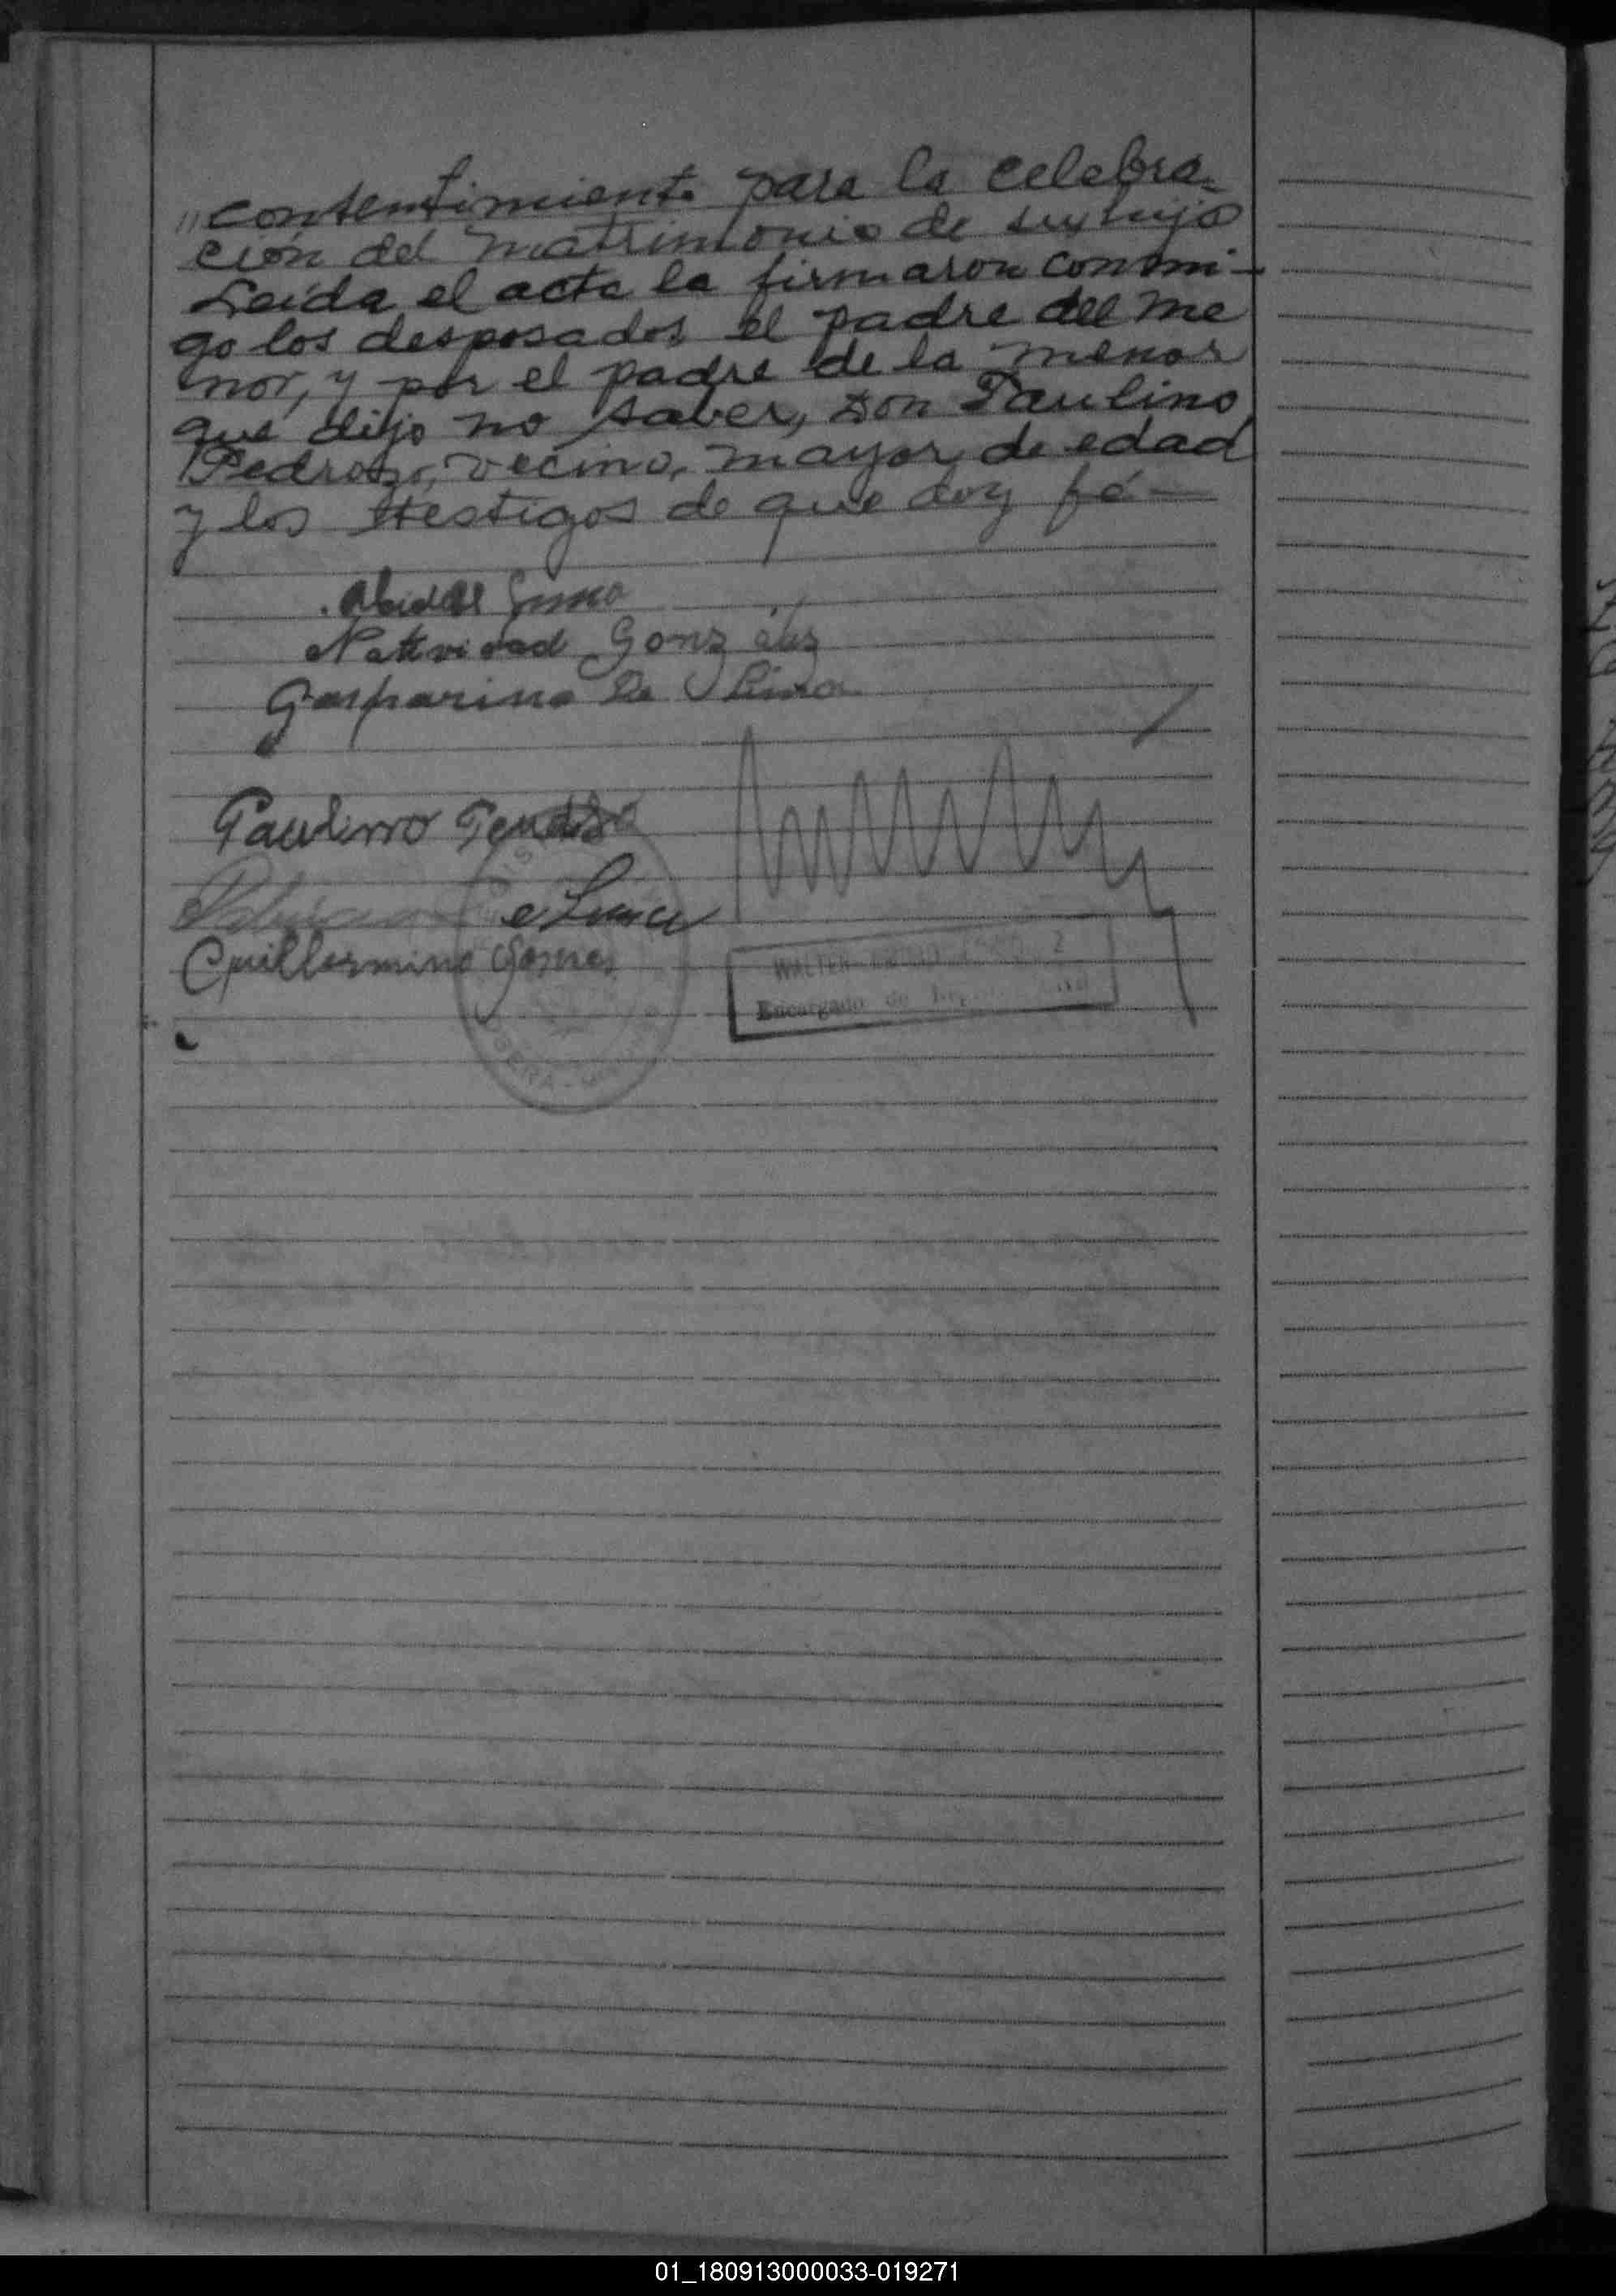 "consentimiento para la celebra-
ción del matrimonio de su hijo
Leída el acta la firmaron conmi-
go los desposados el padre del me
nor, y por el padre de la menor
que dijo no saber, Don Paulino
Pedrozo, vecino, mayor de edad
y los testigos de que doy fé—
Natividad Gonzáles
Gasparino de Lima
Paulino
e Lima
Guillermino Gomes
WALTER
Encargado de
01_180913000033-019271